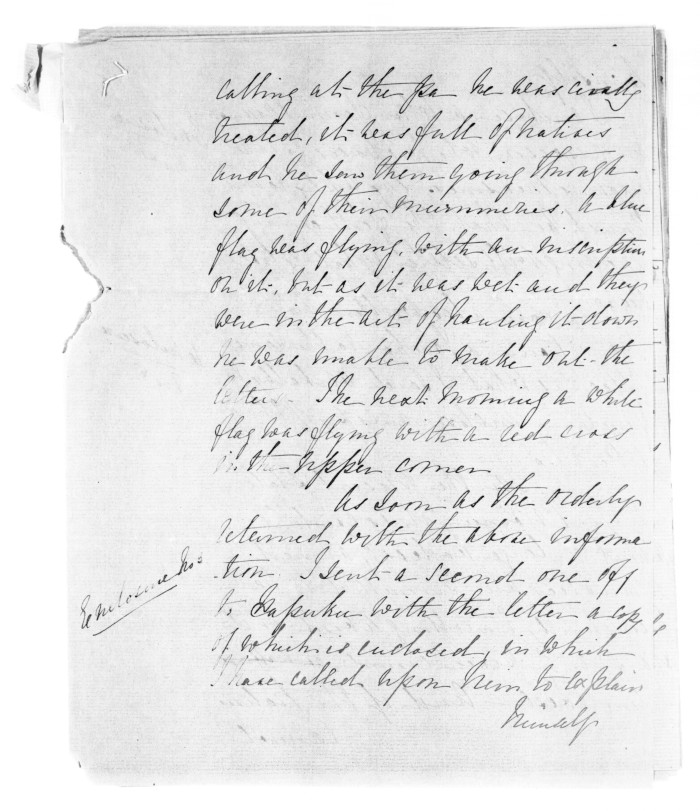 calling at the pa he was civilly
treated, it was full of natives
and he saw them going through
some of their mummeries. a blue
flag was flying, with an inscription
on it, but as it was wet and they
were in the act of hauling it down
he was unable to make out the
letters. The next morning a white
flag was flying with a red cross
in the upper corner
As soon as the orderly
returned with the above informa
tion. I sent a second one off
to Tapuku with the letter a copy
of which is enclosed, in which
I have called upon him to explain
himself
Enclosure No